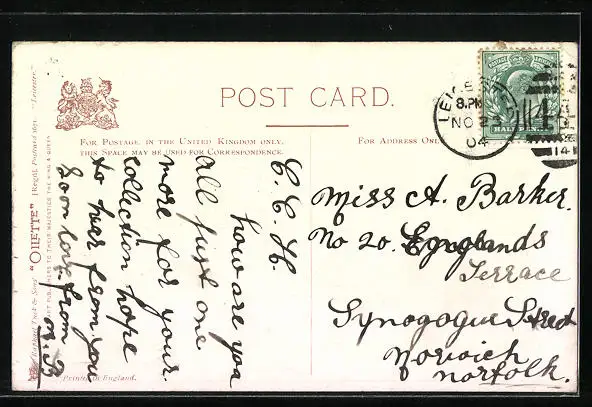 POST CARD.
FOR POSTAGE IN THE UNITED KINGDOM ONLY,
THIS SPACE MAY BE USED FOR CORRESPONDENCE.
FOR ADDRESS ONL
LEICESTER
8.PM
NO 23
04
POSTAGE
HALFPENNY
C. C. H.
how are you
all just one
more for your
collection hope
to hear from you
soon love from
Miss A. Barker.
No 20. Englands
Terrace
Synagogue Street
Norwich
Norfolk.
Raphael Tuck & Sons' "OILETTE" [Regal] Postcard "Leicester."
ART PUBLISHERS TO THEIR MAJESTIES THE KING & QUEEN
Printed in England.